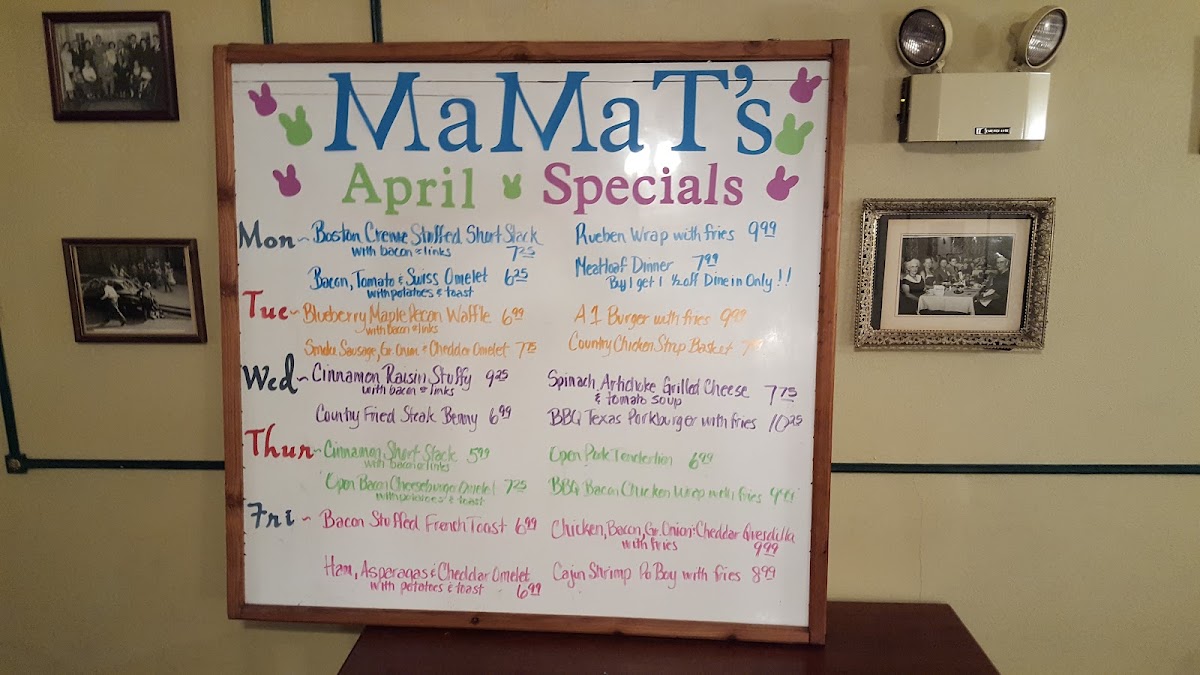 MaMaT's
April Specials
Mon~ Boston Creme Stuffed Short Stack
with bacon & links 7.25
Rueben Wrap with fries 9.99
Bacon, Tomato & Swiss Omelet 6.25
with potatoes & toast
Meatloaf Dinner 7.99
Buy 1 get 1 ½ off Dine in Only!!
Tue~ Blueberry Maple Pecan Waffle 6.99
with bacon & links
A1 Burger with fries 9.99
Smoke Sausage, Gr. Onion & Cheddar Omelet 7.75
Country Chicken Strip Basket
Wed~ Cinnamon Raisin Stuffy 9.25
with bacon & links
Spinach, Artichoke Grilled Cheese 7.75
& tomato soup
Country Fried Steak Benny 6.99
BBQ Texas Porkburger with fries 10.25
Thur~ Cinnamon Short Stack 5.99
with bacon or links
Open Pork Tenderlion 6.99
Open Bacon Cheeseburger Omelet 7.25
with potatoes & toast
BBQ Bacon Chicken Wrap with fries
Fri~ Bacon Stuffed French Toast 6.99
Chicken, Bacon, Gr. Onion & Cheddar Quesdilla
with fries 9.99
Ham, Asparagas & Cheddar Omelet
with potatoes & toast 6.99
Cajun Shrimp Po Boy with fries 8.99